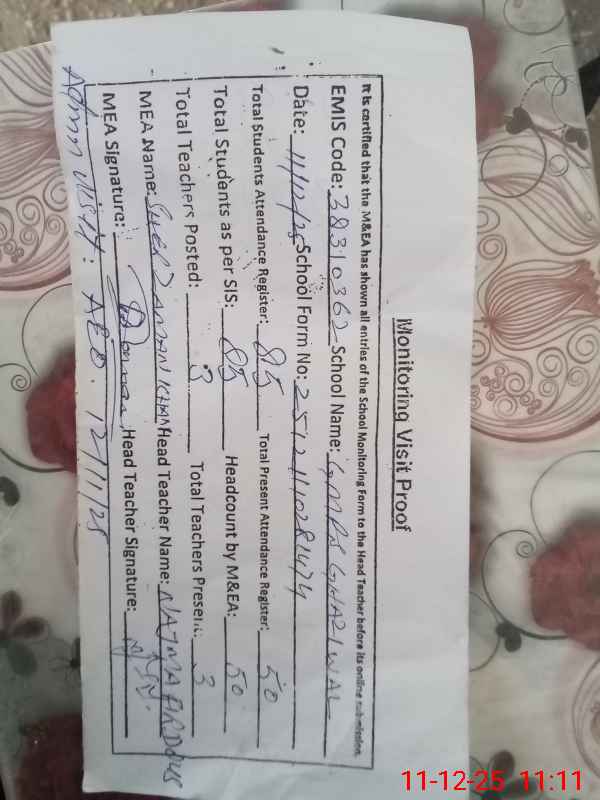 Monitoring Visit Proof
It is certified that the M&EA has shown all entries of the School Monitoring Form to the Head Teacher before its online submission.
EMIS Code: 38310362 School Name: GMPS GHAZIWAL
Date: 11/12/25 School Form No: 25121110281474
Total Students Attendance Register: 85 Total Present Attendance Register: 50
Total Students as per SIS: 85 Headcount by M&EA: 50
Total Teachers Posted: 3 Total Teachers Present: 3
MEA Name: KHAN Head Teacher Name: NAJMA FIRDOUS
MEA Signature: Head Teacher Signature:
Admn Visit: AEO. 12/11/25
11-12-25 11:11